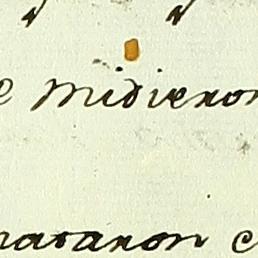 e midieron
mataron c